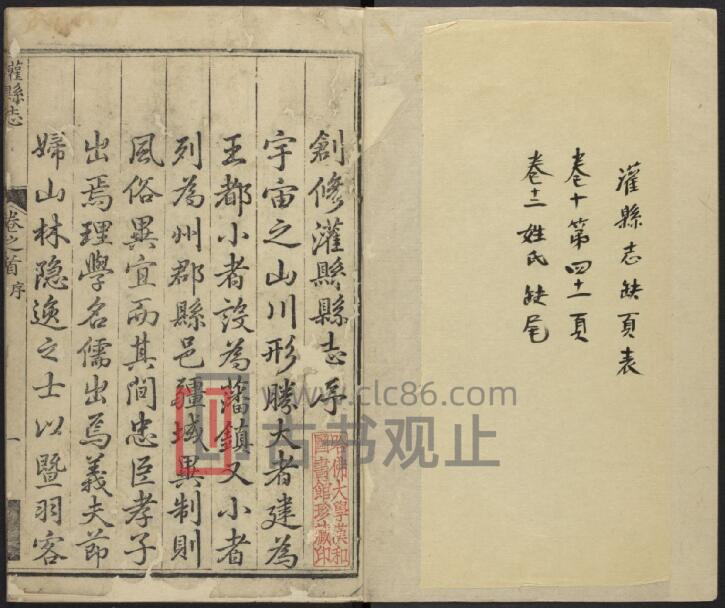 灌縣志缺頁表
卷十第四十一頁
卷十二姓氏缺尾
創修灌縣縣志序
宇宙之山川形勝大者建為
王都小者設為藩鎮又小者
列為州郡縣邑疆域異制則
風俗異宜而其間忠臣孝子
出焉理學名儒出焉義夫節
婦山林隐逸之士以暨羽客
灌縣志
卷之首
序
一
哈佛大學漢和
圖書館珍藏印
www.clc86.com
古书观止